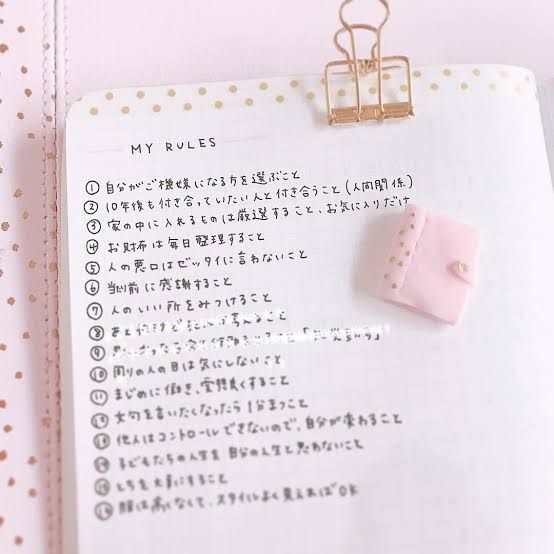 MY RULES
① 自分がご機嫌になる方を選ぶこと
② 10年後も付き合っていたい人と付き合うこと(人間関係)
③ 家の中に入れるものは厳選すること、お気に入りだけ
④ お財布は毎日整理すること
⑤ 人の悪口はゼッタイに言わないこと
⑥ 当前に感謝すること
⑦ 人のいい所をみつけること
⑧ 考えること
⑨
⑩ 周りの人の目は気にしないこと
⑪ まじめに働き、すること
⑫ 文句を言いたくなったら1分まつこと
⑬ 他人はコントロールできないので、自分が変わること
⑭ 子どもたちの人生を自分の人生と思わないこと
⑮ うちを大事にすること
⑯ 服は高くなくて、スタイルよく見えればOK